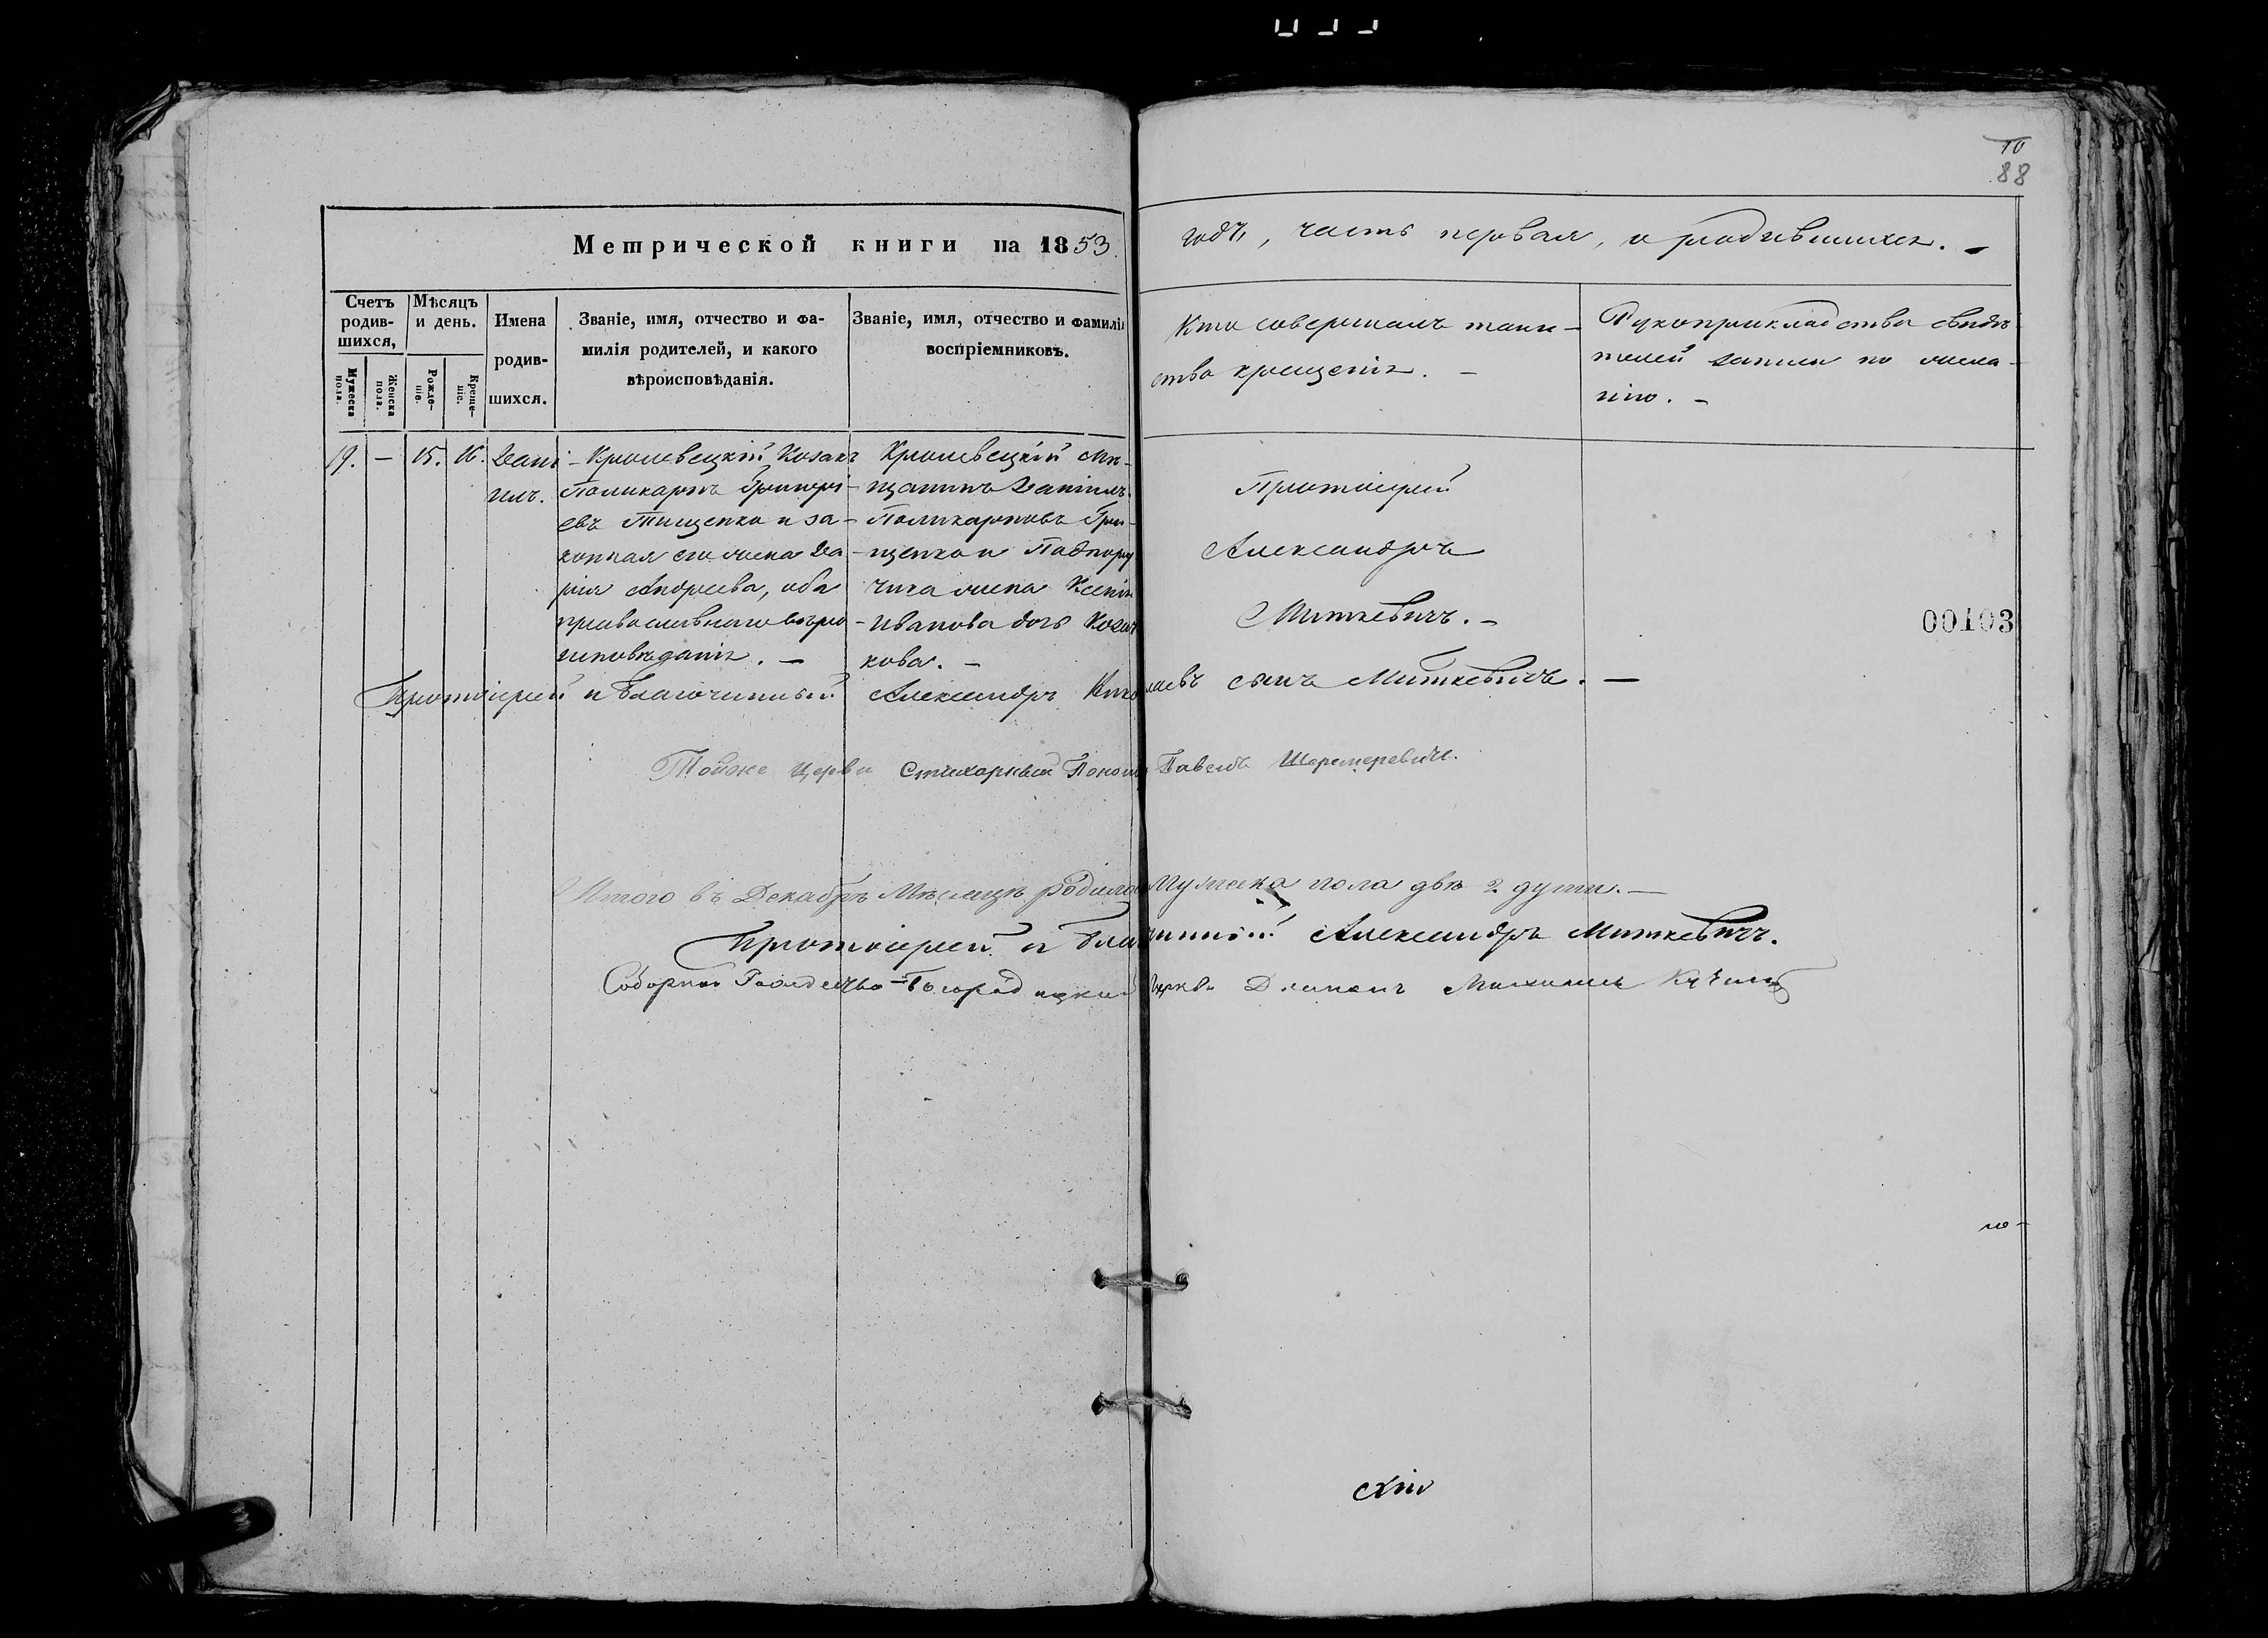 10
88
Метрической книги на 1853.
годъ, часть первая, о родившихся. –
Счетъ родив-шихся,
Мужеска пола.
Женска пола.
Мѣсяцъ и день.
Рожде-ніе.
Креще-ніе.
Имена
родив-
шихся.
Званіе, имя, отчество и фа-
милія родителей, и какого
вѣроисповѣданія.
Званіе, имя, отчество и фамилія
воспріемниковъ.
Кто совершалъ таин-
ство крещенія. –
Рукоприкладство свидѣ
телей записи по жела-
нію. –
19. – 15. 16. Дані-
илъ.
Кролевецкій Козакъ
Поликарпъ Григорі-
евъ Тищенко и за-
конная его жена Да-
рія Андреева, оба
православнаго вѣро
исповѣданія. –
Кролевецкій Мѣ-
щанинъ Даніилъ
Поликарповъ Гри-
щенко и Подпору
чика жена Ксенія
Иванова дочь Козач
кова. –
Протоіерей
Александръ
Миткевичъ. –
00103
Протоіерей и Благочинный Александръ Николаевъ сынъ Миткевичъ. –
Тойже Церкви Стихарный Пономарь Павелъ Шереметевичъ.
Итого въ Декабрѣ Мѣсяцѣ родилось Мужеска пола двѣ 2 души. –
Протоіерей и Благочинный Александръ Миткевичъ.
Соборной Рождество-Богородицкой Церкви Діаконъ Михаилъ
по-